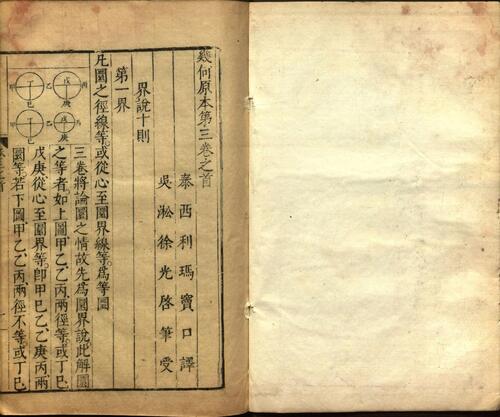 幾何原本第三卷之首
泰西利瑪竇口譯
吳淞徐光啓筆受
界說十則
第一界
凡圜之徑線等或從心至圜界線等爲等圜
三卷將論圜之情故先爲圜界說此解圜
之等者如上圖甲乙乙丙兩徑等或丁己
戊庚從心至圜界等即甲己乙乙庚丙兩
圜等若下圖甲乙乙丙兩徑不等或丁己
甲
丁
乙
戊
丙
己
庚
丁
戊
己
庚